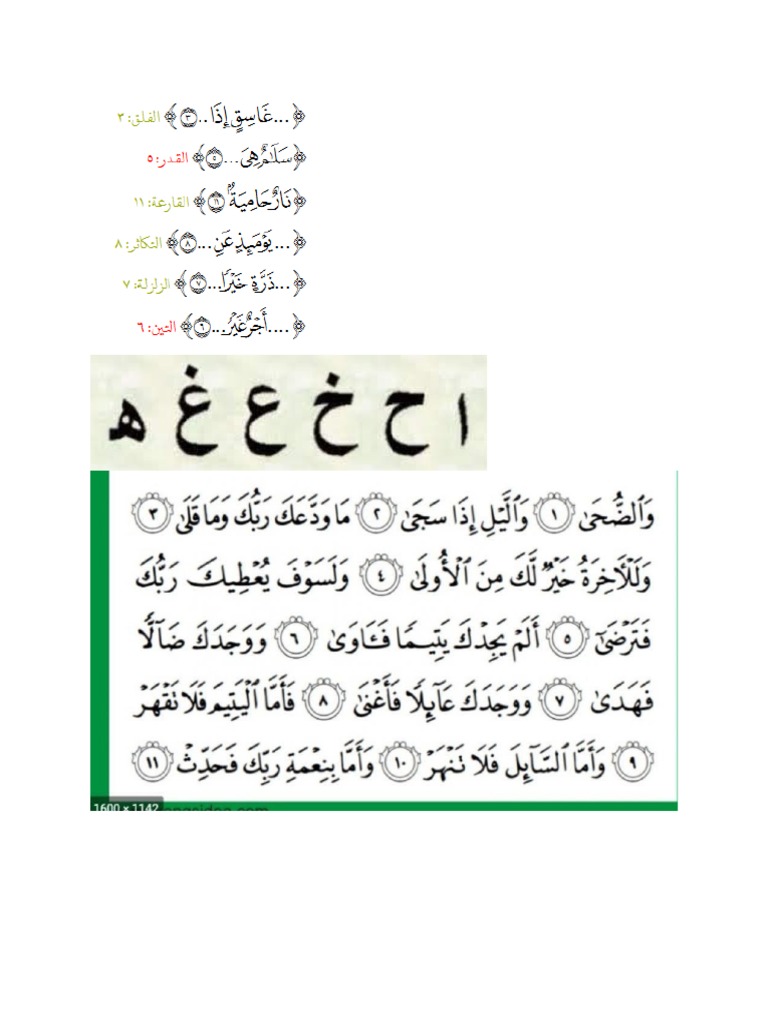 ﴿...غَاسِقٍ إِذَا..٣﴾ الفلق: ٣
﴿سَلَـٰمٌ هِىَ...٥﴾ القدر: ٥
﴿نَارٌ حَامِيَةٌۢ ١١﴾ القارعة: ١١
﴿...يَوْمَئِذٍ عَنِ...٨﴾ التكاثر: ٨
﴿...ذَرَّةٍ خَيْرًا...٧﴾ الزلزلة: ٧
﴿....أَجْرٌ غَيْرُ...٦﴾ التين: ٦
ا ح خ ع غ ه
وَٱلضُّحَىٰ ١ وَٱلَّيْلِ إِذَا سَجَىٰ ٢ مَا وَدَّعَكَ رَبُّكَ وَمَا قَلَىٰ ٣
وَلَلْـَٔاخِرَةُ خَيْرٌ لَّكَ مِنَ ٱلْأُولَىٰ ٤ وَلَسَوْفَ يُعْطِيكَ رَبُّكَ
فَتَرْضَىٰٓ ٥ أَلَمْ يَجِدْكَ يَتِيمًا فَـَٔاوَىٰ ٦ وَوَجَدَكَ ضَآلًّا
فَهَدَىٰ ٧ وَوَجَدَكَ عَآئِلًا فَأَغْنَىٰ ٨ فَأَمَّا ٱلْيَتِيمَ فَلَا تَقْهَرْ
٩ وَأَمَّا ٱلسَّآئِلَ فَلَا تَنْهَرْ ١٠ وَأَمَّا بِنِعْمَةِ رَبِّكَ فَحَدِّثْ ١١
1600 × 1142